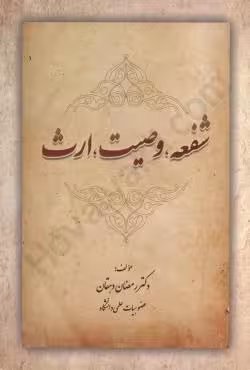 شفعه، وصیت، ارث
مؤلف:
دکتر رمضان دهقان
عضو هیات علمی دانشگاه